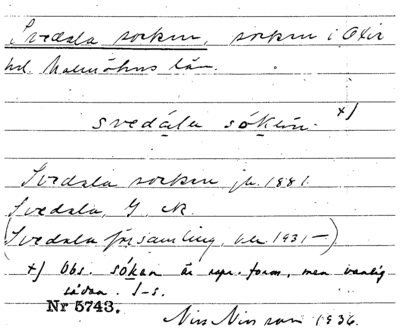 Svedala socken, socken i Oxie
hd. Malmöhus län.
svedála sókən. x)
Svedala socken jb. 1881.
Svedala, G. K.
(Svedala församling, 1931–)
x) Obs. sókan är repr. form, men vanlig
sådan. I–s.
Nr 5743.
Nils Nilsson 1936.